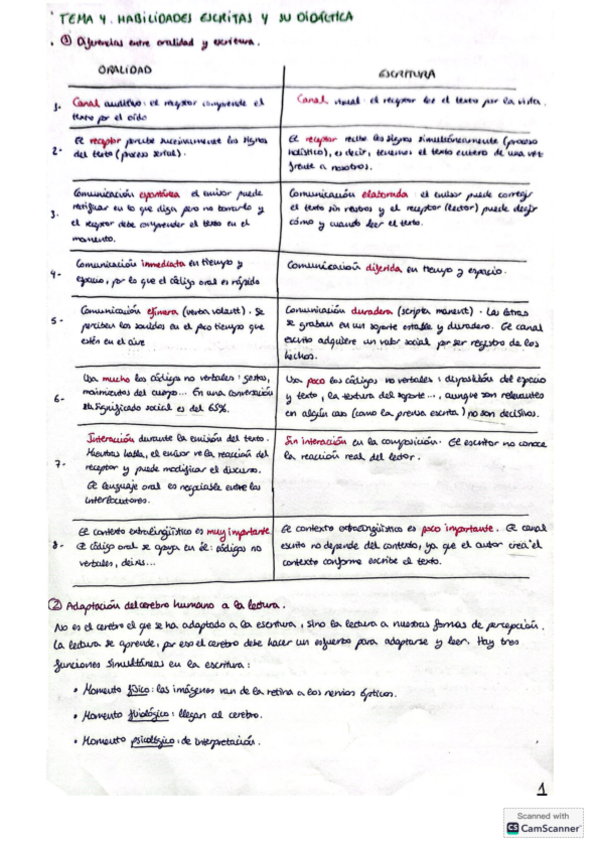 TEMA 4. HABILIDADES ESCRITAS Y SU DIDÁCTICA
① Diferencias entre oralidad y escritura.
ORALIDAD
ESCRITURA
1- Canal auditivo: el receptor comprende el
texto por el oído
Canal visual: el receptor lee el texto por la vista.
2- El receptor percibe sucesivamente los signos
del texto (proceso serial).
El receptor recibe los signos simultáneamente (proceso
holístico), es decir, tenemos el texto entero de una vez
frente a nosotros.
3- Comunicación espontánea: el emisor puede
rectificar en lo que diga pero no borrarlo y
el receptor debe comprender el texto en el
momento.
Comunicación elaborada: el emisor puede corregir
el texto sin rastros y el receptor (lector) puede elegir
cómo y cuando leer el texto.
4- Comunicación inmediata en tiempo y
espacio, por lo que el código oral es rápido
Comunicación diferida en tiempo y espacio.
5- Comunicación efímera (verba volant). Se
perciben los sonidos en el poco tiempo que
estén en el aire
Comunicación duradera (scripta manent). Las letras
se graban en un soporte estable y duradero. El canal
escrito adquiere un valor social por ser registro de los
hechos.
6- Usa mucho los códigos no verbales: gestos,
movimientos del cuerpo... En una conversación
el significado social es del 65%.
Usa poco los códigos no verbales: disposición del espacio
y texto, la textura del soporte..., aunque son relevantes
en algún caso (como la prensa escrita) no son decisivos.
7- Interacción durante la emisión del texto.
Mientras habla, el emisor ve la reacción del
receptor y puede modificar el discurso.
El lenguaje oral es negociable entre los
interlocutores.
Sin interacción en la composición. El escritor no conoce
la reacción real del lector.
8- El contexto extralingüístico es muy importante
El código oral se apoya en él: códigos no
verbales, deixis...
El contexto extralingüístico es poco importante. El canal
escrito no depende del contexto, ya que el autor crea el
contexto conforme escribe el texto.
② Adaptación del cerebro humano a la lectura.
No es el cerebro el que se ha adaptado a la escritura, sino la lectura a nuestras formas de percepción.
La lectura se aprende, por eso el cerebro debe hacer un esfuerzo para adaptarse y leer. Hay tres
funciones simultáneas en la escritura:
• Momento físico: las imágenes van de la retina a los nervios ópticos.
• Momento fisiológico: llegan al cerebro.
• Momento psicológico: de interpretación.
1
Scanned with
CS CamScanner